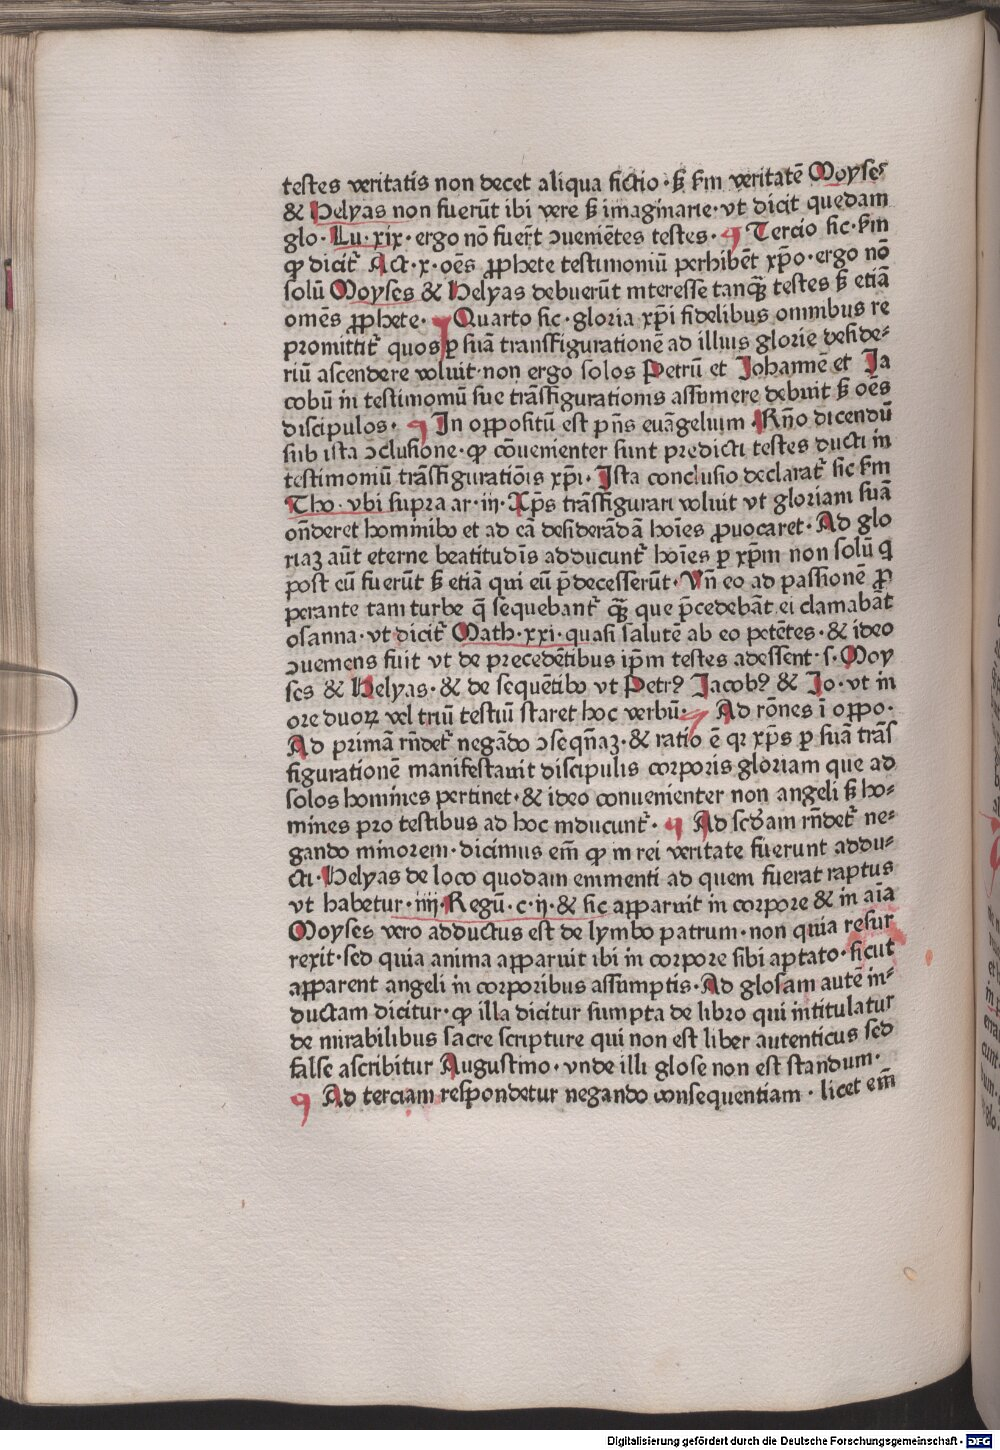 testes veritatis non decet aliqua fictio · s̄ ẜm veritatē Moyses
& Helyas non fuerūt ibi vere s̄ imaginarie · vt dicit quedam
glo · Lu · xix · ergo nō fuer̄t ↄueniētes testes · ¶ Tercio sic · ẜm
ꝙ dicit᷑ Act · x · oēs ꝓphete testimoniū perhibēt xp̄o · ergo nō
solū Moyses & Helyas debuerūt interesse tanqꝫ̄ testes s̄ etiā
omēs ꝓphete · ¶ Quarto sic · gloria xp̄i fidelibus omnibus re
promittit᷑ quos ꝑ suā transfigurationē ad illius glorie deside⸗
riū ascendere voluit · non ergo solos Petrū et Johannē et Ja
cobū in testimoniū sue trāsfigurationis assumere debuit s̄ oēs
discipulos · ¶ In oppositū est p̄ns euāgelium · Rn̄o dicendū
sub ista ↄclusione · ꝙ cōuenienter sunt predicti testes ducti in
testimoniū trāsfiguratiōis xp̄i · Ista conclusio declarat᷑ sic ẜm
Tho · vbi supra ar · iij · Xp̄s trāsfigurari voluit vt gloriam suā
on̄deret hominibꝰ et ad eā desiderādā hoīes ꝓuocaret · Ad glo
riaꝫ aūt eterne beatitudīs adducunt᷑ hoīes ꝑ xp̄m non solū q
post eū fuerūt s̄ etiā qui eū p̄decesserūt · Vn̄ eo ad passionē ꝓ
perante tam turbe q̄ sequebant᷑ qꝫ̄ que p̄cedebāt ei clamabāt
osanna · vt dicit᷑ Math · xxi · quasi salutē ab eo petētes · & ideo
ↄueniens fuit vt de precedētibus ip̄m testes adessent · s · Moy
ses & Helyas · & de sequētibꝰ vt Petrꝰ Jacobꝰ & Jo · vt in
ore duoꝝ vel triū testiū staret hoc verbū · ¶ Ad rōnes ī oppo ·
Ad primā rn̄det᷑ negādo ↄseqn̄aꝫ · & ratio ē qr xp̄s ꝑ suā trās
figurationē manifestauit discipulis corporis gloriam que ad
solos homines pertinet · & ideo conuenienter non angeli s̄ ho⸗
mines pro testibus ad hoc inducunt᷑ · ¶ Ad scd̄am rn̄det᷑ ne⸗
gando minorem · dicimus em̄ ꝙ in rei veritate fuerunt addu⸗
cti · Helyas de loco quodam eminenti ad quem fuerat raptus
vt habetur · iiij · Regū · c · ij · & sic apparuit in corpore & in aīa
Moyses vero adductus est de lymbo patrum · non quia resur
rexit · sed quia anima apparuit ibi in corpore sibi aptato · sicut
apparent angeli in corporibus assumptis · Ad glosam autē in⸗
ductam dicitur · ꝙ illa dicitur sumpta de libro qui intitulatur
de mirabilibus sacre scripture qui non est liber autenticus sed
false ascribitur Augustino · vnde illi glose non est standum ·
¶ Ad terciam respondetur negando consequentiam · licet em̄
Digitalisierung gefördert durch die Deutsche Forschungsgemeinschaft - DFG